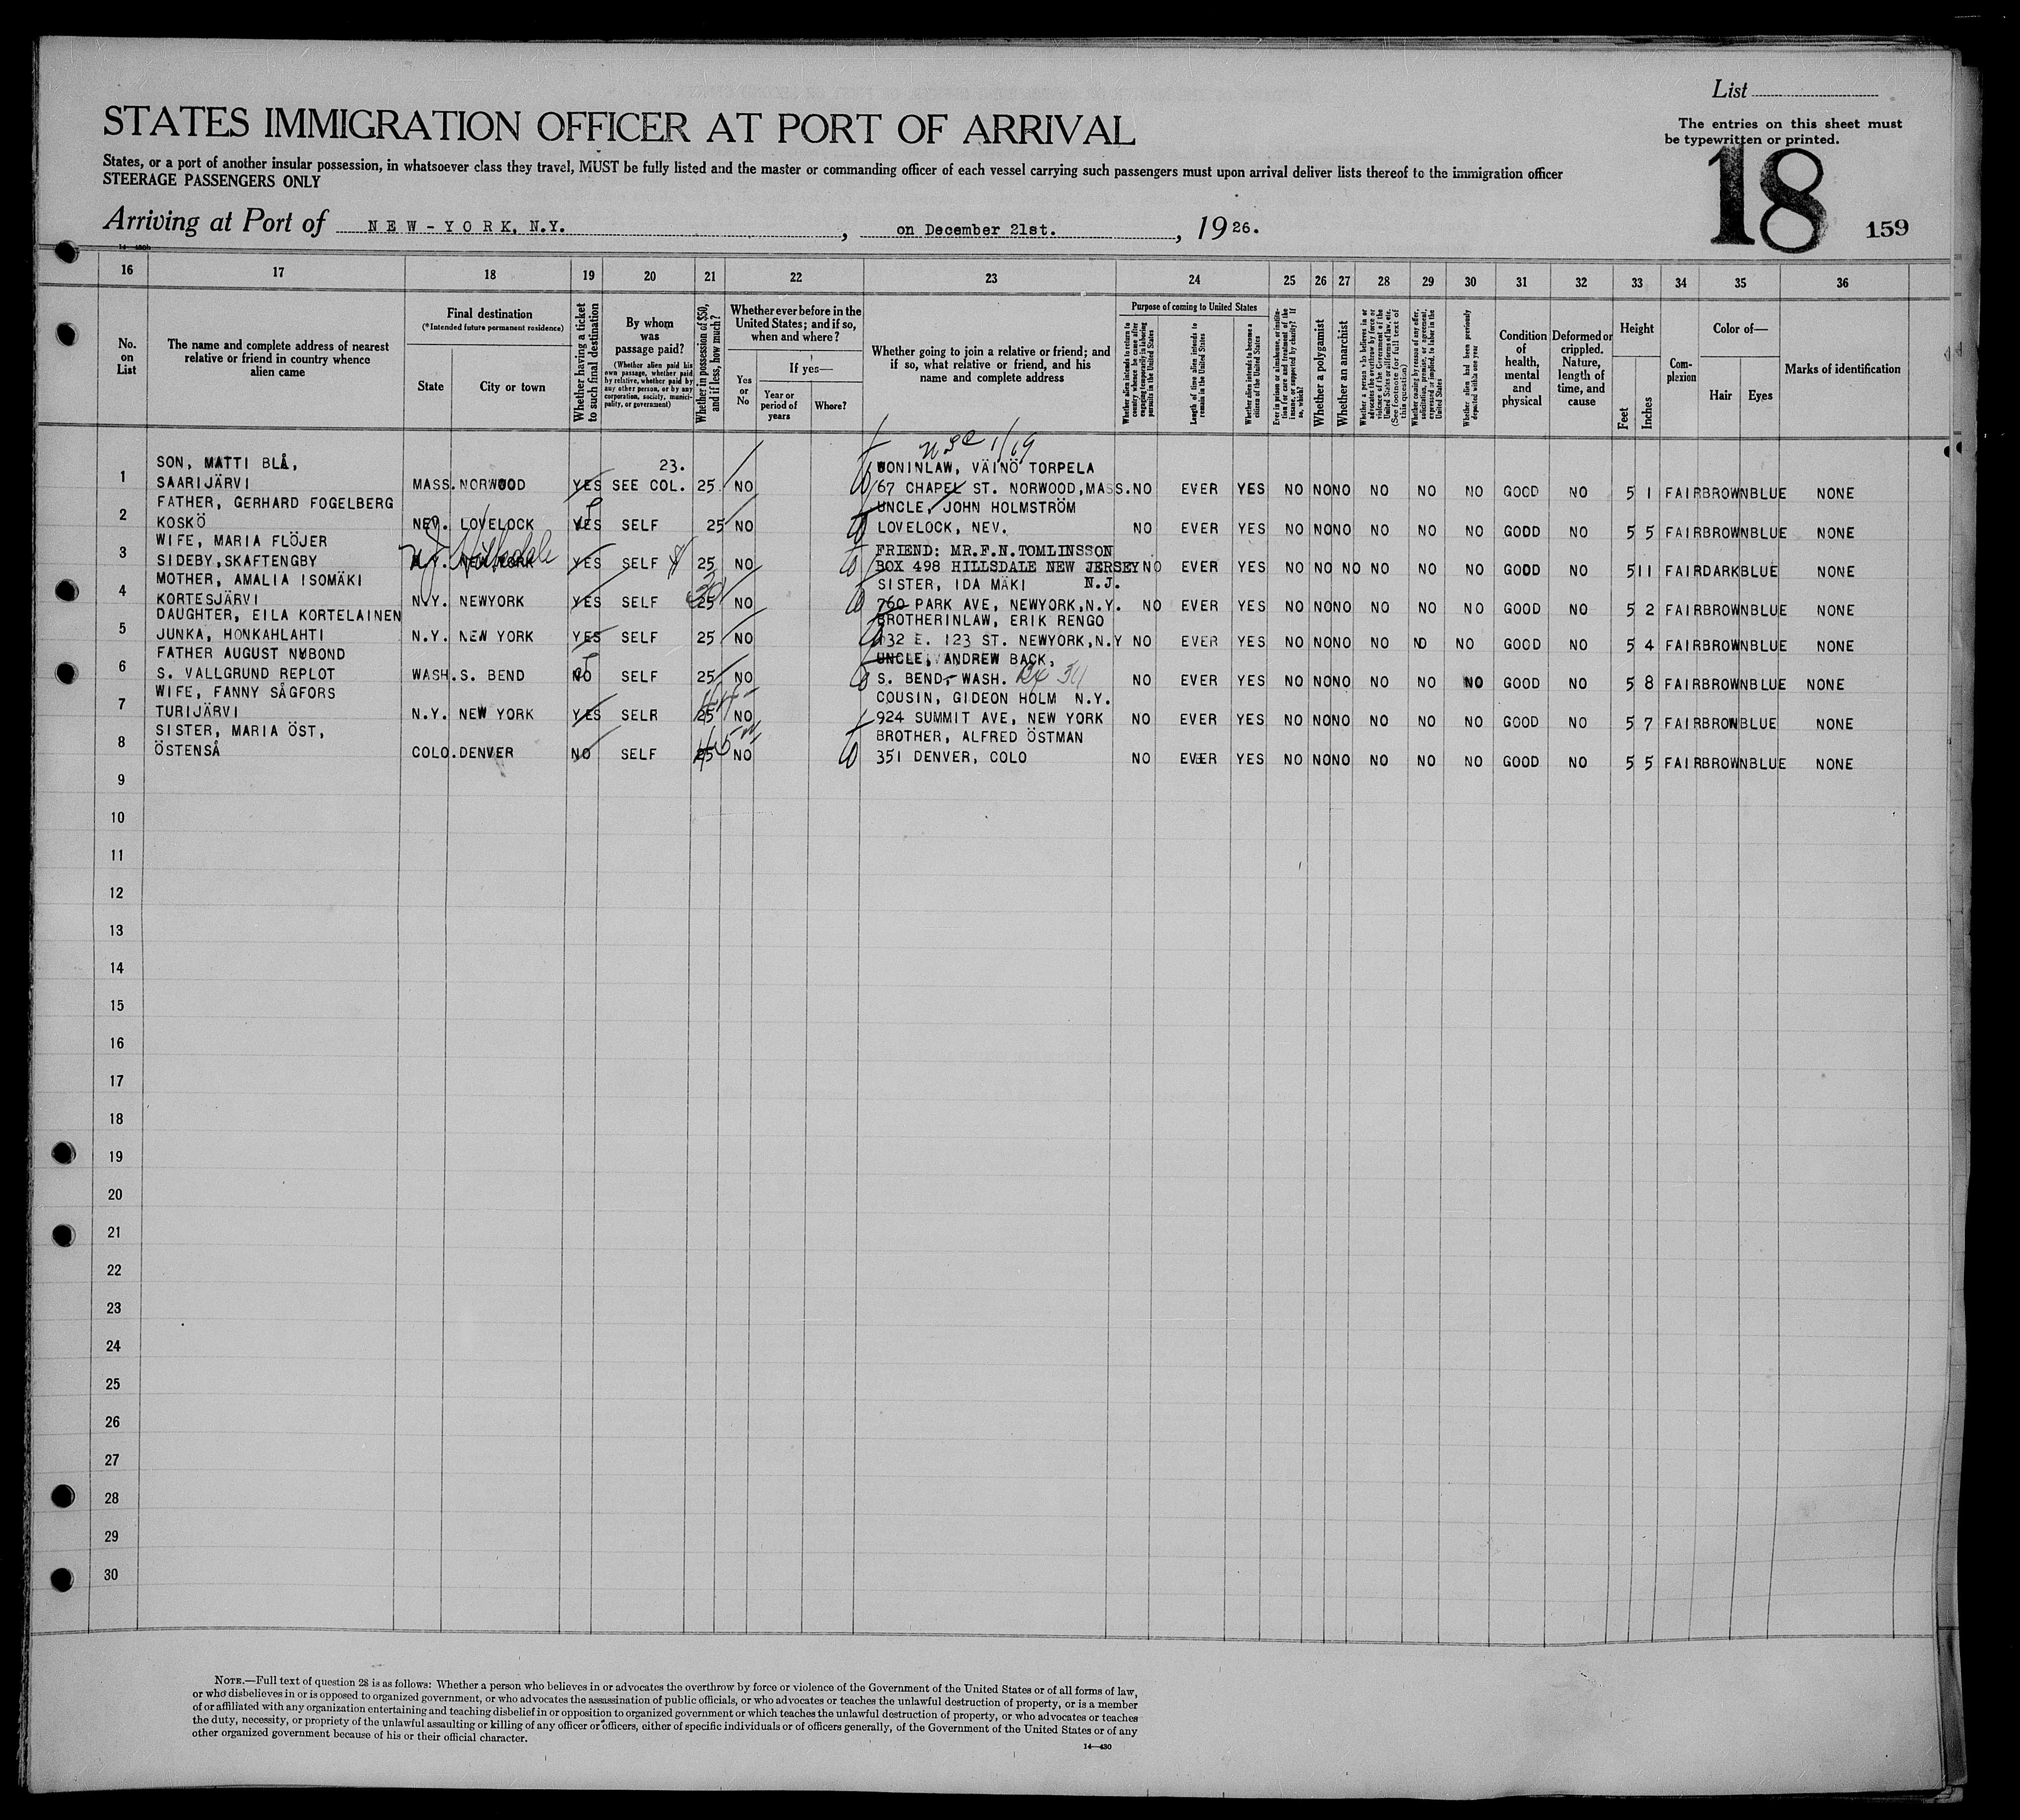 List
STATES IMMIGRATION OFFICER AT PORT OF ARRIVAL
The entries on this sheet must
be typewritten or printed.
States, or a port of another insular possession, in whatsoever class they travel, MUST be fully listed and the master or commanding officer of each vessel carrying such passengers must upon arrival deliver lists thereof to the immigration officer
STEERAGE PASSENGERS ONLY
18
159
Arriving at Port of NEW-YORK, N.Y., on December 21st., 1926.
16 17 18 19 20 21 22 23 24 25 26 27 28 29 30 31 32 33 34 35 36
No. on List
The name and complete address of nearest relative or friend in country whence alien came
Final destination
(*Intended future permanent residence)
State
City or town
Whether having a ticket to such final destination
By whom was passage paid?
(Whether alien paid his own passage, whether paid by relative, whether paid by any other person, or by any corporation, society, municipality, or government)
Whether in possession of $50, and if less, how much?
Whether ever before in the United States; and if so, when and where?
Yes or No
If yes—
Year or period of years
Where?
Whether going to join a relative or friend; and if so, what relative or friend, and his name and complete address
Purpose of coming to United States
Whether alien intends to return to country whence he came after engaging temporarily in laboring pursuits in the United States
Length of time alien intends to remain in the United States
Whether alien intends to become a citizen of the United States
Ever in prison or almshouse, or institution for care and treatment of the insane, or supported by charity? If so, which?
Whether a polygamist
Whether an anarchist
Whether a person who believes in or advocates the overthrow by force or violence of the Government of the United States or all forms of law, etc. (See footnote for full text of this question)
Whether coming by reason of any offer, solicitation, promise, or agreement, expressed or implied, to labor in the United States
Whether alien had been previously deported within one year
Condition of health, mental and physical
Deformed or crippled. Nature, length of time, and cause
Height
Feet
Inches
Complexion
Color of—
Hair
Eyes
Marks of identification
SON, MATTI BLÅ, 23. SONINLAW, VÄINÖ TORPELA
1 SAARIJÄRVI MASS. NORWOOD YES SEE COL. 25 NO 67 CHAPEL ST. NORWOOD,MASS. NO EVER YES NO NO NO NO NO NO GOOD NO 5 1 FAIR BROWN BLUE NONE
FATHER, GERHARD FOGELBERG UNCLE, JOHN HOLMSTRÖM
2 KOSKÖ NEV. LOVELOCK YES SELF 25 NO LOVELOCK, NEV. NO EVER YES NO NO NO NO NO NO GOOD NO 5 5 FAIR BROWN BLUE NONE
WIFE, MARIA FLÖJER FRIEND: MR.F.N.TOMLINSSON
3 SIDEBY,SKAFTENGBY N.Y. NEWYORK NJ Hillsdale YES SELF 25 NO BOX 498 HILLSDALE NEW JERSEY NO EVER YES NO NO NO NO NO NO GOOD NO 5 11 FAIR DARK BLUE NONE
MOTHER, AMALIA ISOMÄKI SISTER, IDA MÄKI N.J.
4 KORTESJÄRVI N.Y. NEWYORK YES SELF 25 NO 760 PARK AVE, NEWYORK,N.Y. NO EVER YES NO NO NO NO NO NO GOOD NO 5 2 FAIR BROWN BLUE NONE
DAUGHTER, EILA KORTELAINEN BROTHERINLAW, ERIK RENGO
5 JUNKA, HONKAHLAHTI N.Y. NEW YORK YES SELF 25 NO 132 E. 123 ST. NEWYORK,N.Y NO EVER YES NO NO NO NO NO NO GOOD NO 5 4 FAIR BROWN BLUE NONE
FATHER AUGUST NYBOND UNCLE, ANDREW BACK,
6 S. VALLGRUND REPLOT WASH. S. BEND NO SELF 25 NO S. BEND, WASH. NO EVER YES NO NO NO NO NO NO GOOD NO 5 8 FAIR BROWN BLUE NONE
WIFE, FANNY SÅGFORS COUSIN, GIDEON HOLM N.Y.
7 TURIJÄRVI N.Y. NEW YORK YES SELR 25 NO 924 SUMMIT AVE, NEW YORK NO EVER YES NO NO NO NO NO NO GOOD NO 5 7 FAIR BROWN BLUE NONE
SISTER, MARIA ÖST, BROTHER, ALFRED ÖSTMAN
8 ÖSTENSÅ COLO. DENVER NO SELF 25 NO 351 DENVER, COLO NO EVER YES NO NO NO NO NO NO GOOD NO 5 5 FAIR BROWN BLUE NONE
9
10
11
12
13
14
15
16
17
18
19
20
21
22
23
24
25
26
27
28
29
30
NOTE.—Full text of question 28 is as follows: Whether a person who believes in or advocates the overthrow by force or violence of the Government of the United States or of all forms of law,
or who disbelieves in or is opposed to organized government, or who advocates the assassination of public officials, or who advocates or teaches the unlawful destruction of property, or is a member
of or affiliated with any organization entertaining and teaching disbelief in or opposition to organized government or which teaches the unlawful destruction of property, or who advocates or teaches
the duty, necessity, or propriety of the unlawful assaulting or killing of any officer or officers, either of specific individuals or of officers generally, of the Government of the United States or of any
other organized government because of his or their official character.
14—430